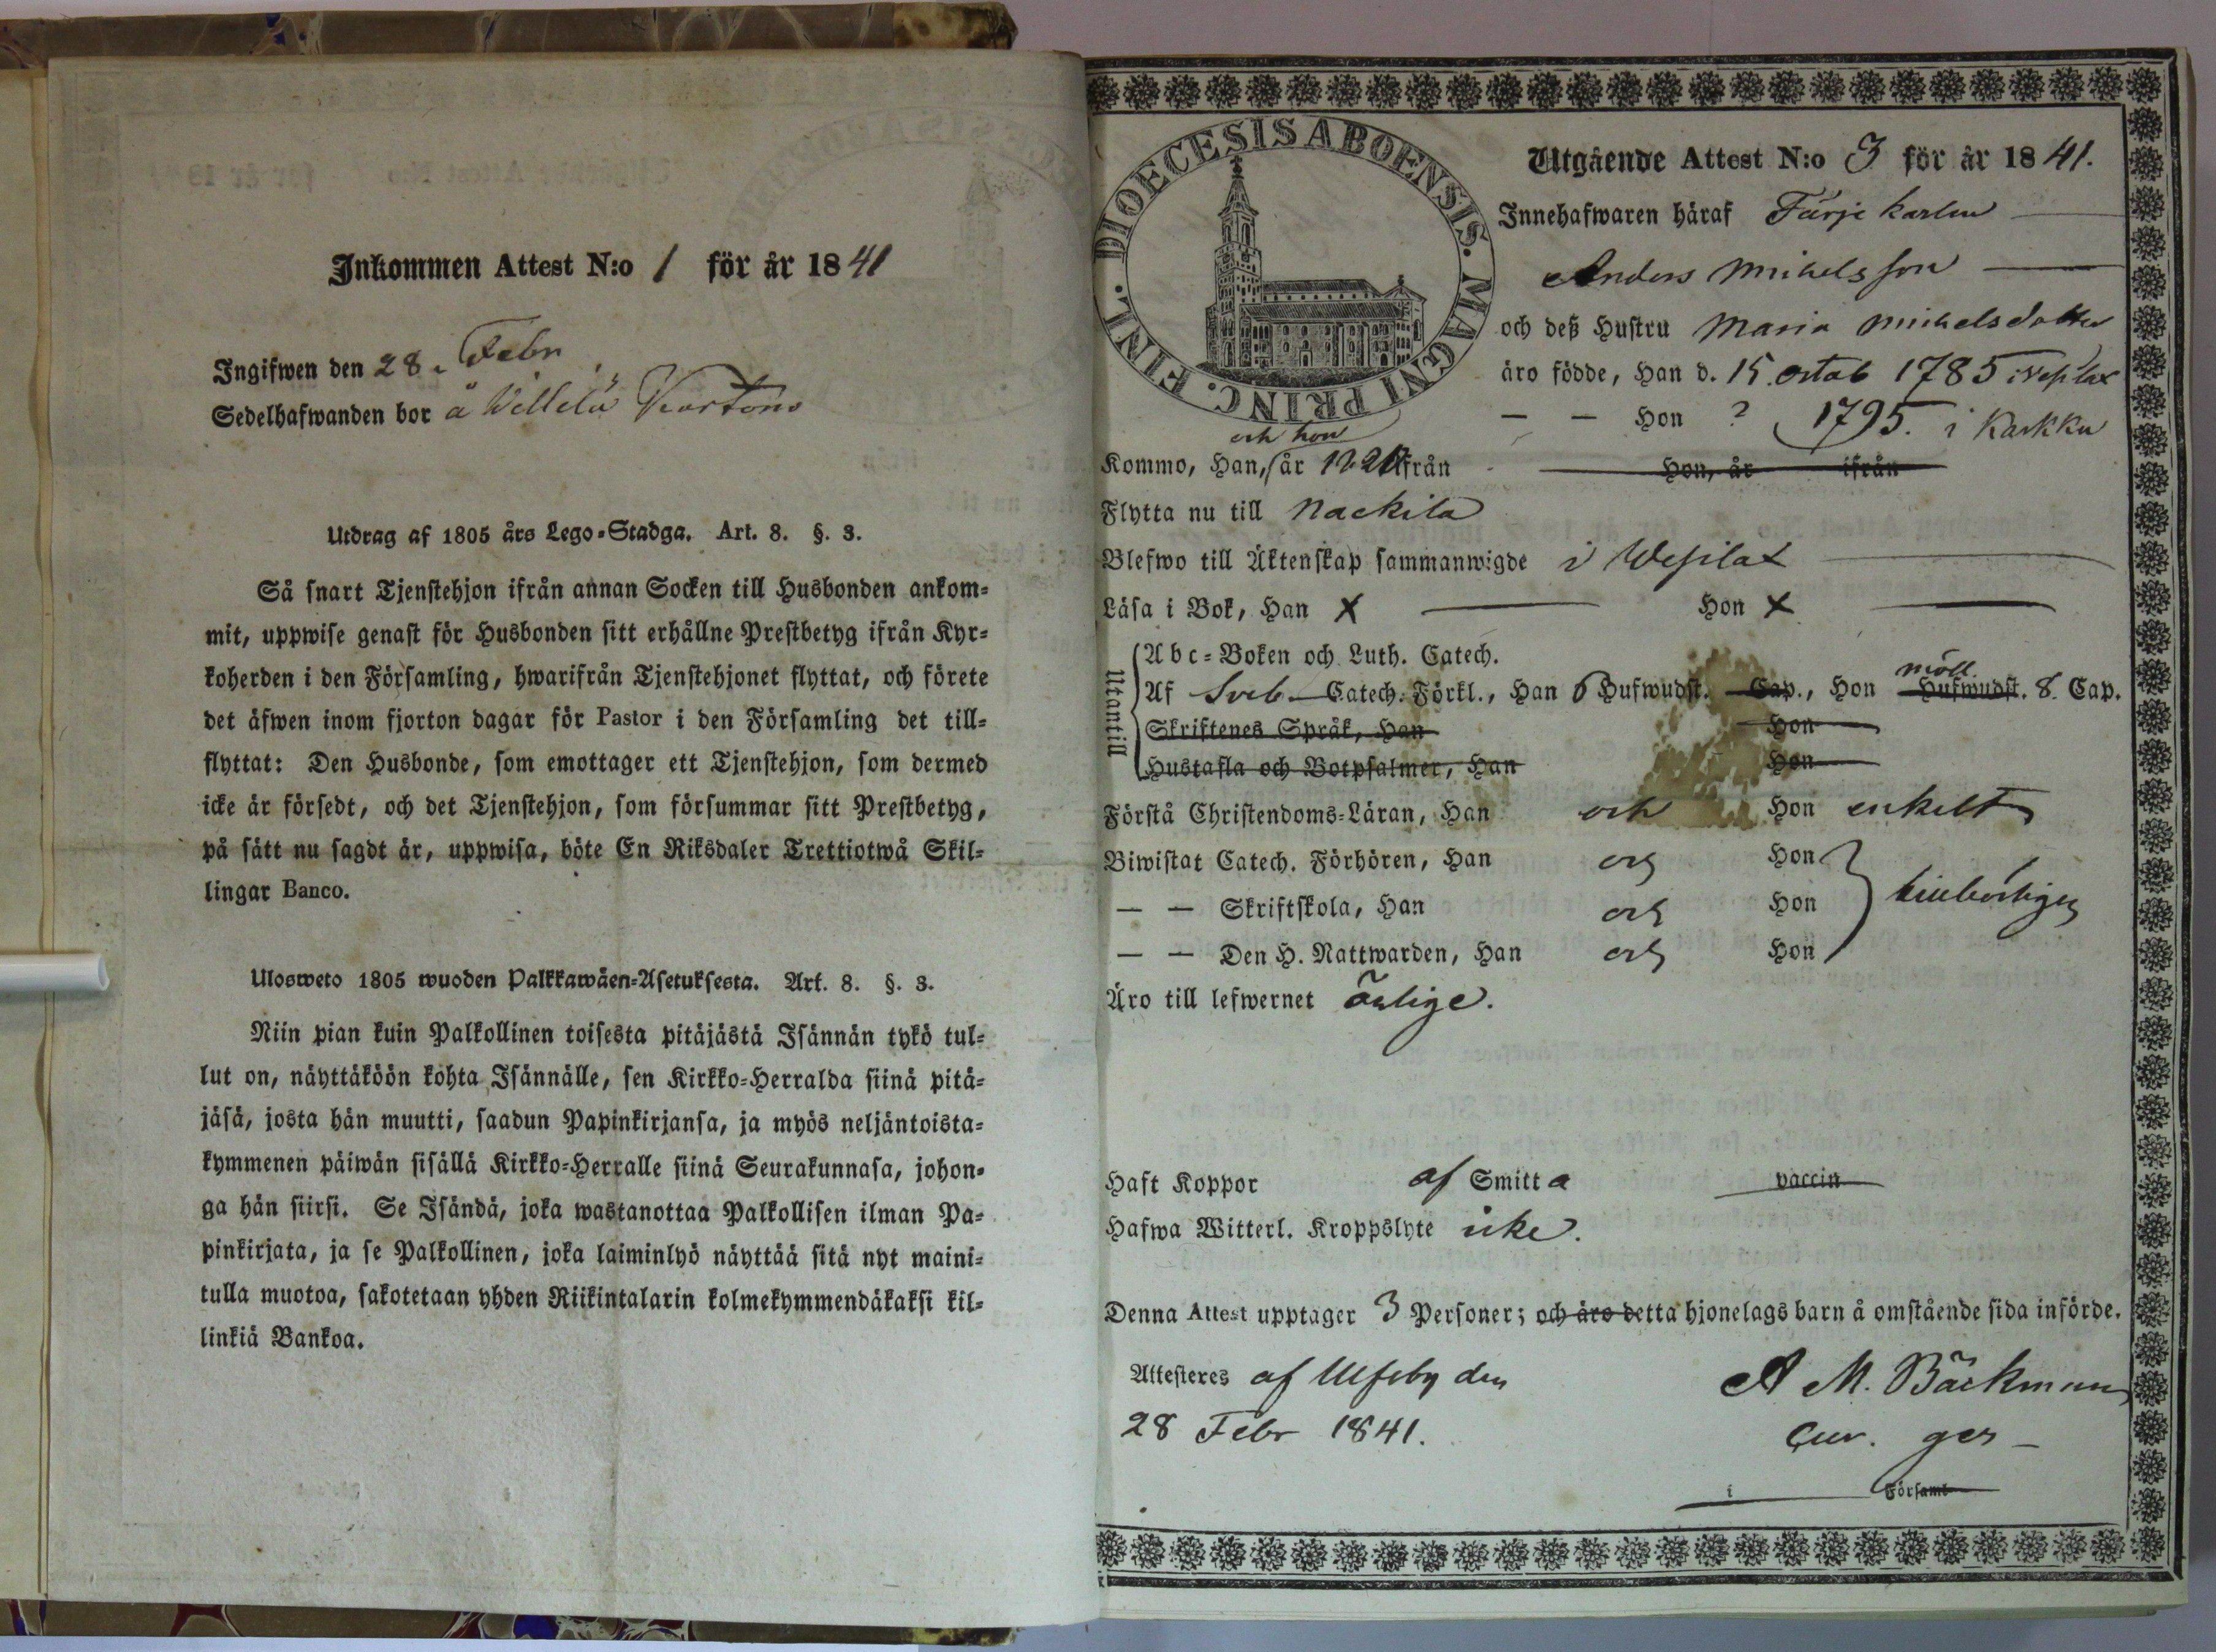 Inkommen Attest N:o 1 för år 1841
Ingifwen den 28. Febr
Sedelhafwanden bor å Willilä
Utdrag af 1805 års Lego-Stadga. Art. 8. §. 3.
Så snart Tjenstehjon ifrån annan Socken till Husbonden ankom-
mit, uppwise genast för Husbonden sitt erhållne Prestbetyg ifrån Kyr-
koherden i den Församling, hwarifrån Tjenstehjonet flyttat, och förete
det äfwen inom fjorton dagar för Pastor i den Församling det till-
flyttat: Den Husbonde, som emottager ett Tjenstehjon, som dermed
icke är försedt, och det Tjenstehjon, som försummar sitt Prestbetyg,
på sätt nu sagdt är, uppwisa, böte En Riksdaler Trettiotwå Skil-
lingar Banco.
Ulosweto 1805 wuoden Palkkawäen-Asetuksesta. Art. 8. §. 3.
Niin pian kuin Palkollinen toisesta pitäjästä Isännän tykö tul-
lut on, näyttäköön kohta Isännälle, sen Kirkko-Herralda siinä pitä-
jäsä, josta hän muutti, saadun Papinkirjansa, ja myös neljäntoista-
kymmenen päiwän sisällä Kirkko-Herralle siinä Seurakunnasa, johon-
ga hän siirsi. Se Isändä, joka wastanottaa Palkollisen ilman Pa-
pinkirjata, ja se Palkollinen, joka laiminlyö näyttää sitä nyt maini-
tulla muotoa, sakotetaan yhden Riikintalarin kolmekymmendäkaksi kil-
linkiä Bankoa.
DIOECESIS ABOENSIS. MAGNI PRINC. FINL.
Utgående Attest N:o 3 för år 1841.
Innehafwaren häraf Färje karlen
Anders Mihelsson
och deß Hustru Maria Michelsdotter
äro födde, Han d. 15 octob 1785 i Vesilax
— — Hon ? 1795. i Karkku
och hon
Kommo, Han, år ifrån Hon, år ifrån
Flytta nu till Nackila
Blefwo till Äktenskap sammanwigde i Wesilax
Läsa i Bok, Han X Hon X
Utantill
Abc-Boken och Luth. Catech.
möll.
Af Sveb. Catech. Förkl., Han 6 Hufwudst. Cap., Hon Hufwudst. 8. Cap.
Skriftenes Språk, Han Hon
Hustafla och Botpsalmer, Han Hon
Förstå Christendoms-Läran, Han och Hon enkelt
Biwistat Catech. Förhören, Han och Hon
— — Skriftskola, Han och Hon tillbörligen
— — Den H. Nattwarden, Han och Hon
Äro till lefwernet ärlige.
Haft Koppor af Smitta vaccin
Hafwa Witterl. Kroppslyte icke.
Denna Attest upptager 3 Personer; och äro detta hjonelags barn å omstående sida införde.
Attesteres af Ulfsby den A M. Bäckman
28 Febr 1841. Cur. ger
i Församl